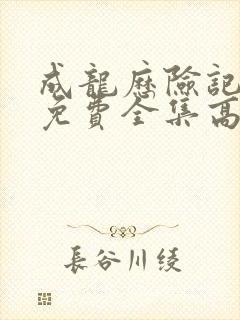 成龍歷險記
免費全集高
長谷川綾